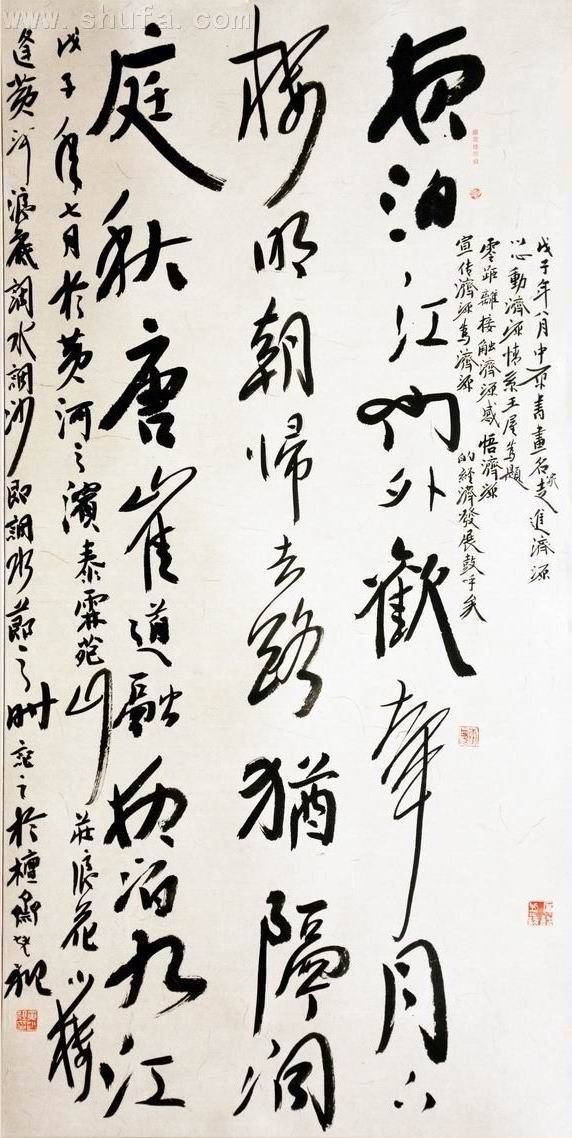 www.shufa.com
戊子年八月中京書畫名家走進濟源
以心動濟源情系王屋為題
零距離接觸濟源感悟濟源
宣传濟源為濟源的經濟發展鼓呼
夜泊江門外歡聲月下
樓明朝歸去路猶隔洞
庭秋唐崔道融夜泊九江
戊子年七月於黄河之濱泰霖苑山莊浪花小樓
逢黄河浪底調水調沙即調水節之時 於檀